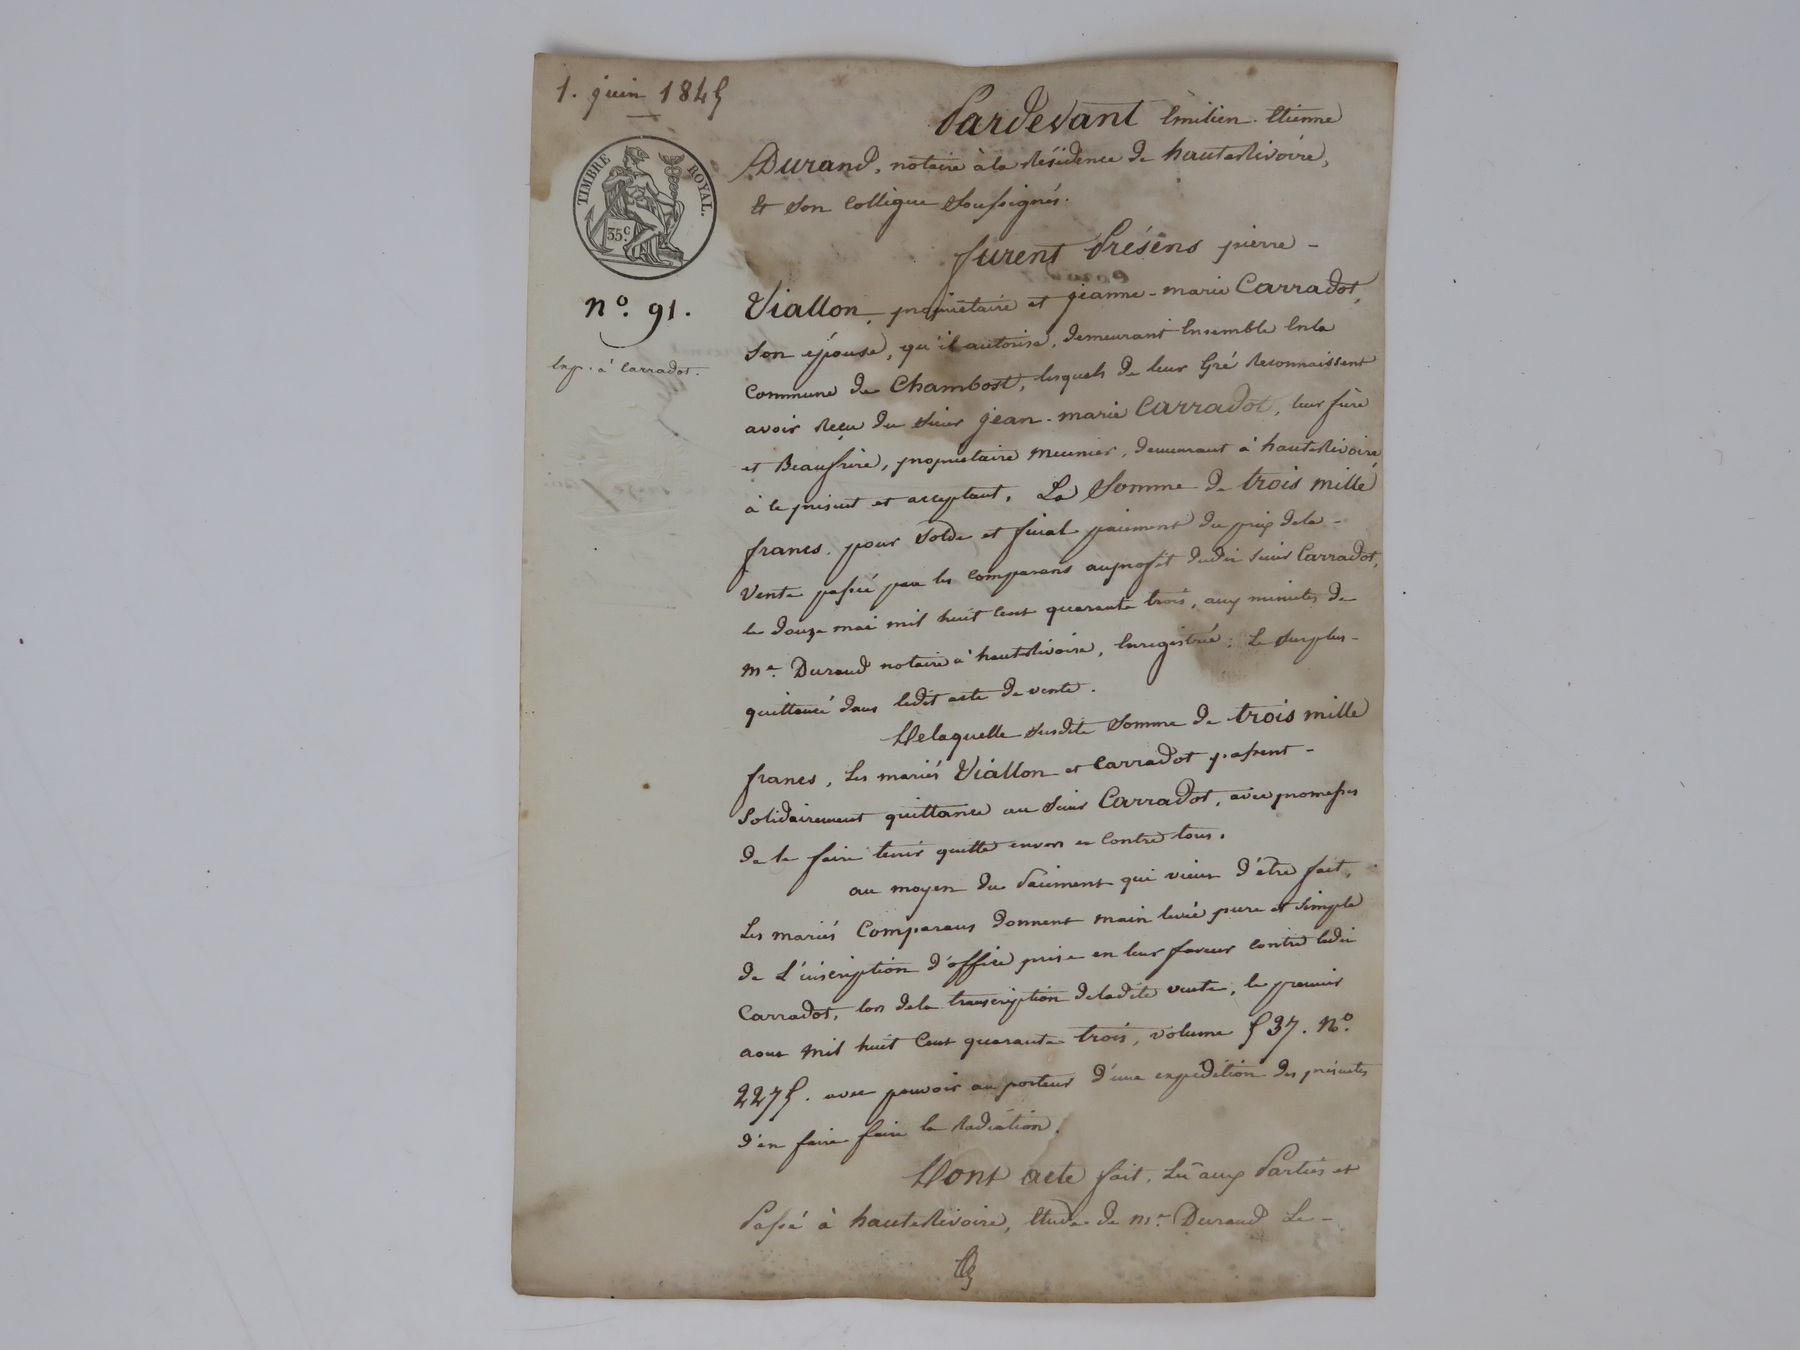 1. juin 1845
TIMBRE ROYAL.
35c.
No. 91.
Exp. à Carradot.
Pardevant Emilien Etienne
Durand, notaire à la Résidence de hauterivoire,
Et son Collègue soussignés.
furent Présens pierre -
Viallon, propriétaire et jeanne-marie Carradot,
son épouse, qu'il autorise, demeurant Ensemble En la
Commune de Chambost, lesquels de leur Gré Reconnaissent
avoir Reçu du sieur jean-marie Carradot, leur frère
et Beaufrère, propriétaire meunier, demeurant à hauterivoire,
à ce présent et acceptant, La Somme de trois mille
francs, pour solde et final paiement du prix dela -
Vente passée par les comparans au profit dudit sieur Carradot,
le douze mai mil huit cent quarante trois, aux minutes de
me. Durand notaire à hauterivoire, Enregistrée; Le surplus -
quittancé dans ledit acte de vente.
Delaquelle susdite somme de trois mille
francs, Les mariés Viallon et Carradot passent -
Solidairement quittance au sieur Carradot, avec promesses
de le faire tenir quitte envers et contre tous.
au moyen du Paiement qui vient d'être fait,
Les mariés Comparans donnent main levée pure et simple
de L'inscription d'office prise en leur faveur contre ledit
Carradot, lors dela transcription deladite vente, le premier
aout mil huit Cent quarante trois, volume 537. No.
2275. avec pouvoir au porteur d'une expédition des présentes
d'en faire faire la Radiation.
Dont acte fait, Lu aux Parties et
Passé à hauterivoire, Etude de me. Durand Le -